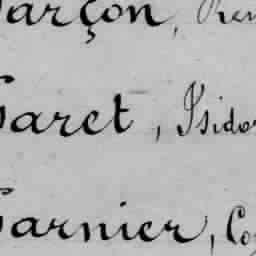 arçon, Ren
Garet, Isidor
Garnier, Co